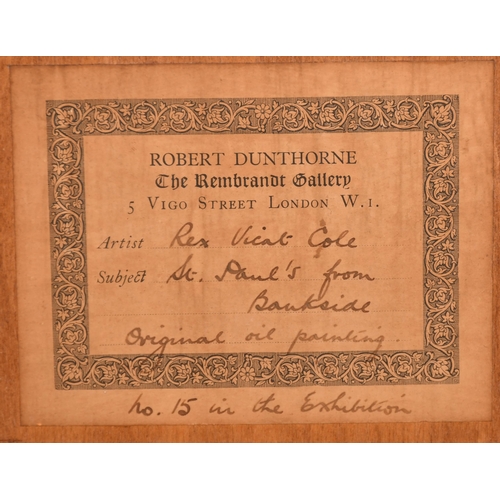 ROBERT DUNTHORNE
The Rembrandt Gallery
5 VIGO STREET LONDON W.1.
Artist Rex Vicat Cole
Subject St. Paul's from
Bankside
Original oil painting.
No. 15 in the Exhibition